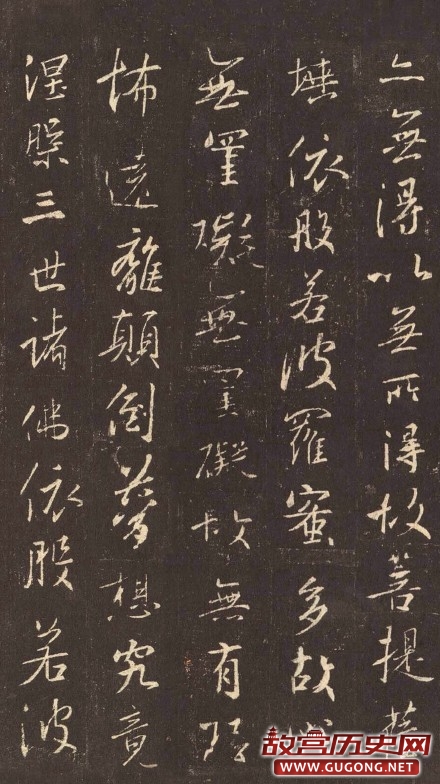 亦無得以無所得故菩提薩
埵依般若波羅蜜多故心
無罣礙無罣礙故無有恐
怖遠離顛倒夢想究竟
涅槃三世諸佛依般若波
故宫历史网
WWW.GUGONG.NET